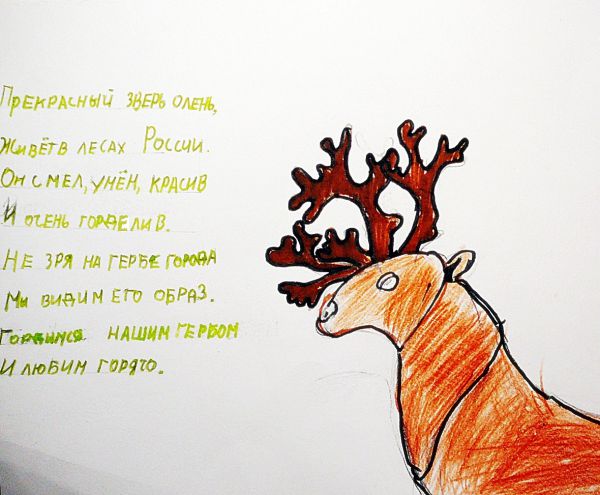 Прекрасный зверь олень,
Живёт в лесах России.
Он смел, умён, красив
И очень горделив.
Не зря на гербе города
Мы видим его образ.
Гордимся нашим гербом
И любим горячо.